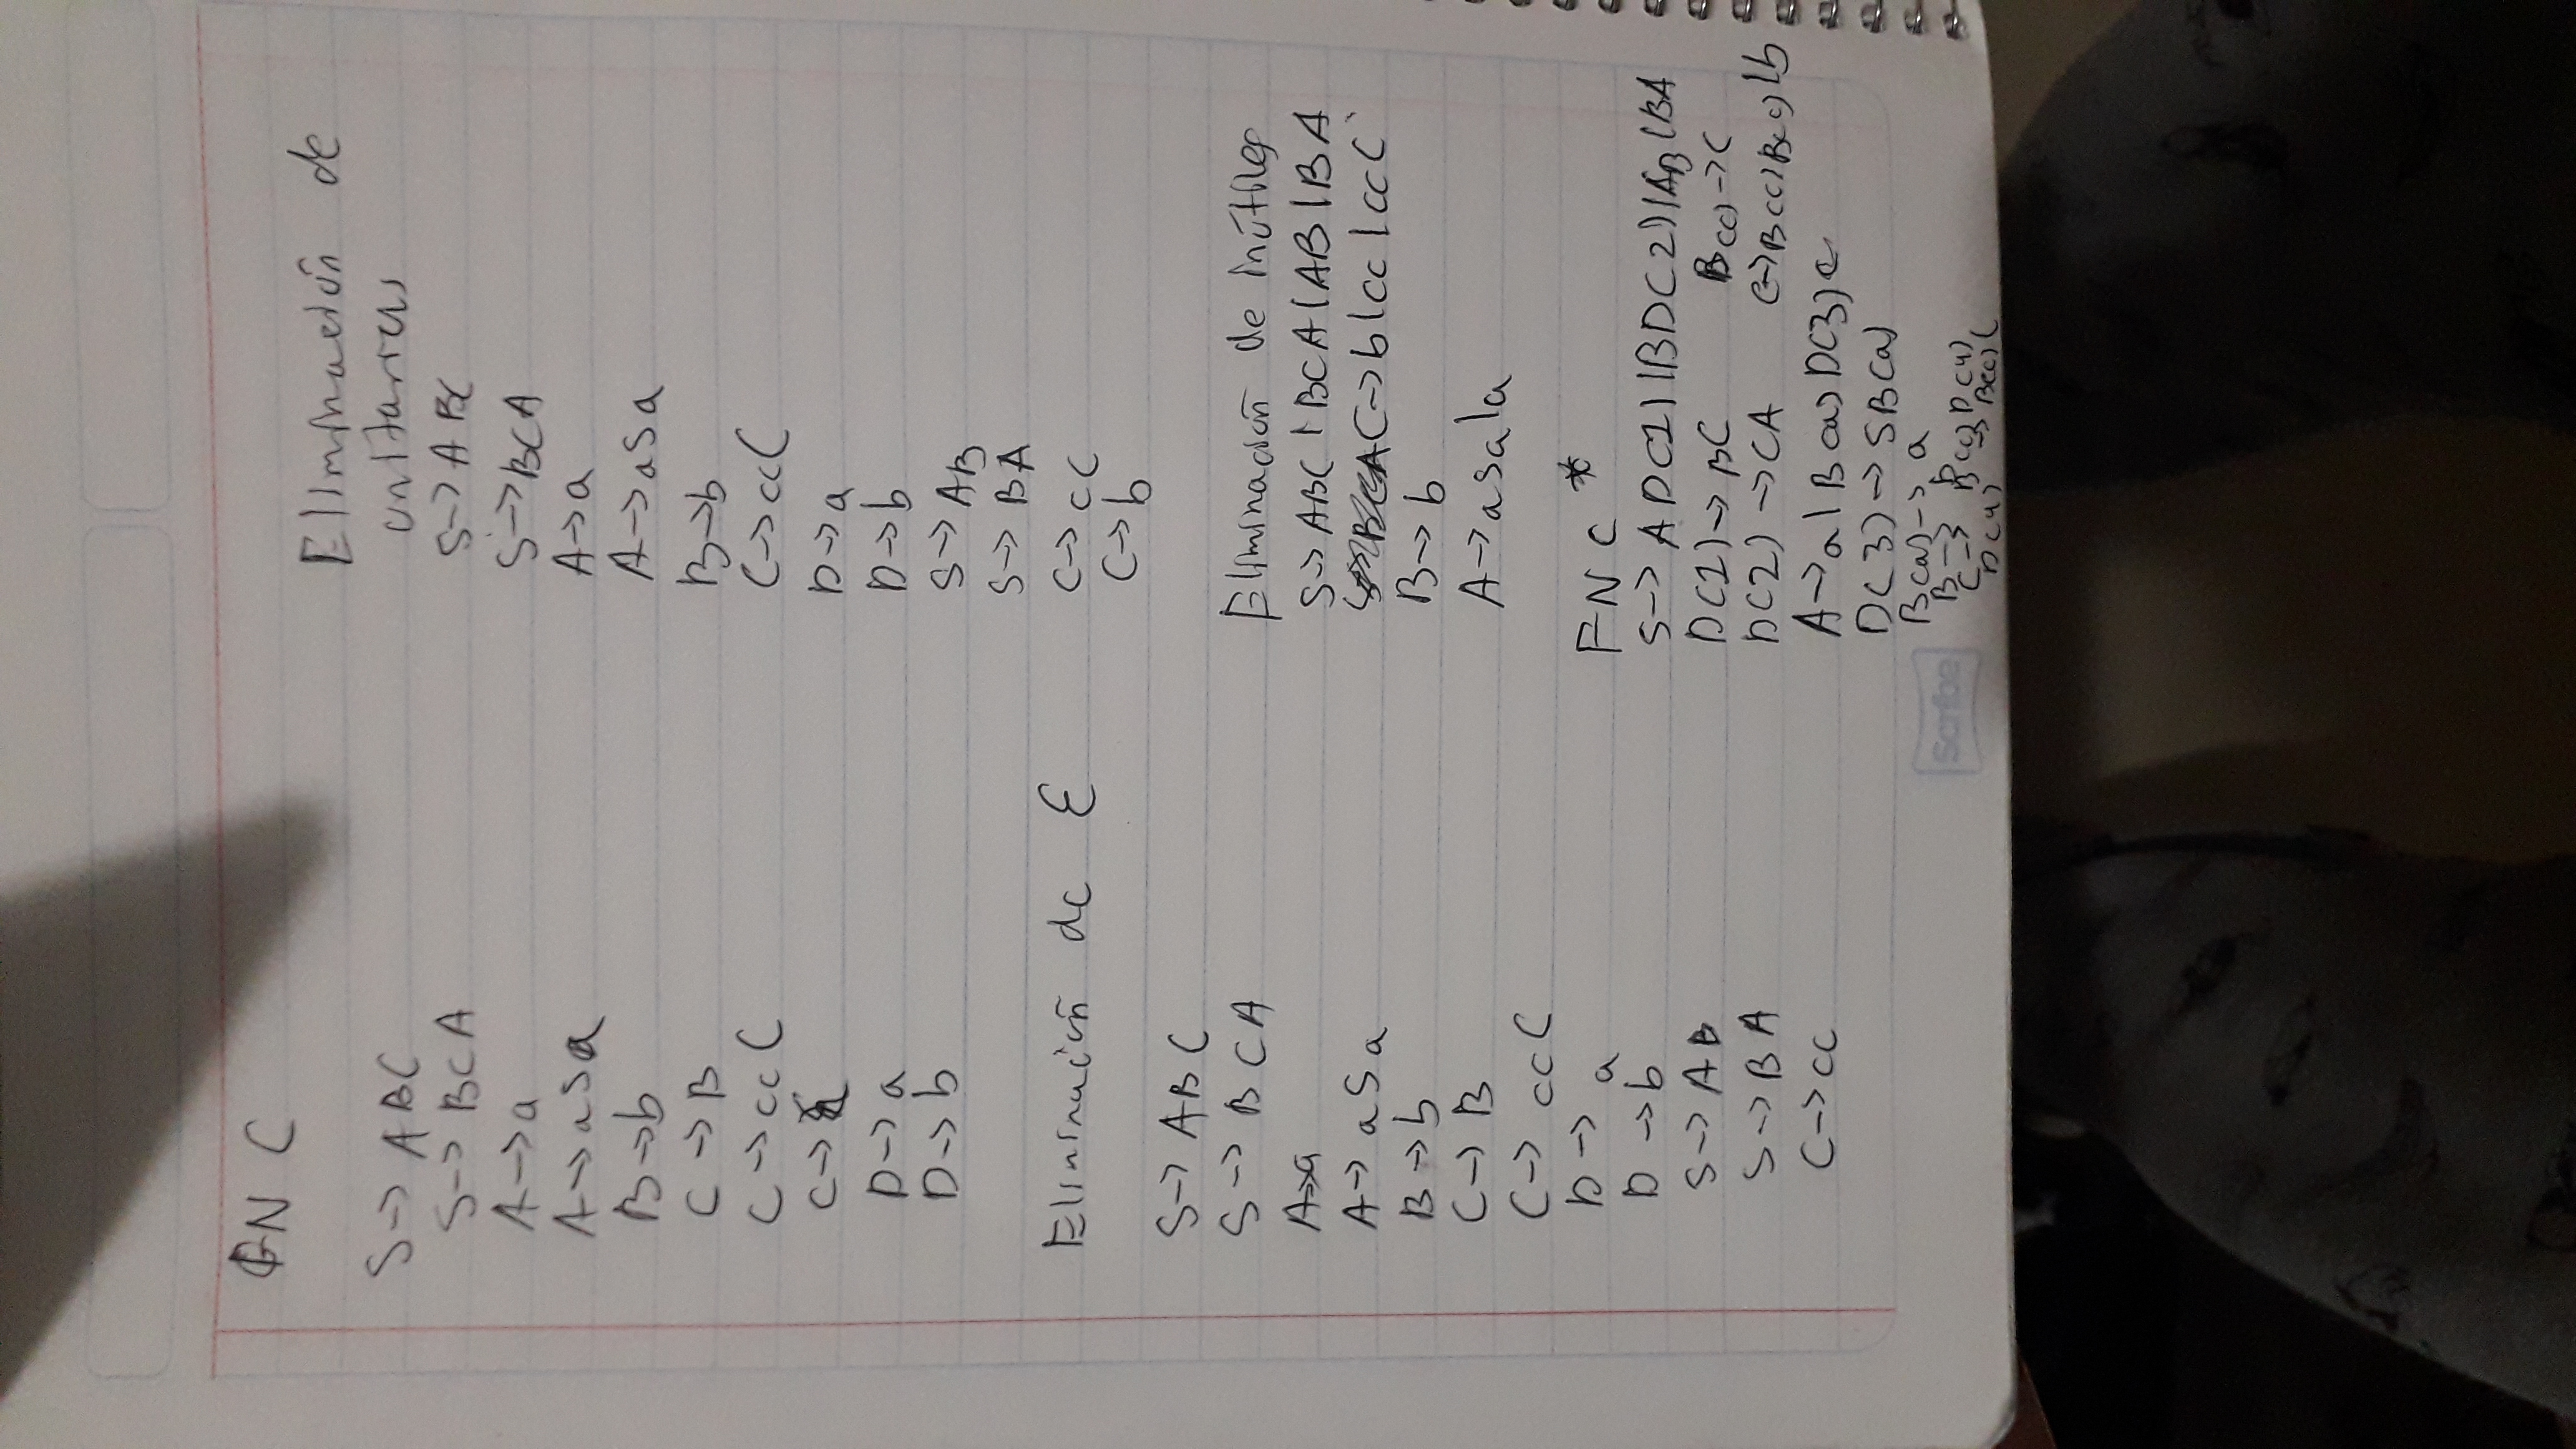 FNC
S→ ABC
S→ BCA
A→a
A→aSa
B→b
C→B
C→ccC
C→
D→a
D→b
Eliminación de ε
S→ ABC
S→ BCA
A→a
A→ aSa
B→b
C→ B
C→ ccC
D→ a
D→b
S→AB
S→BA
C→cc
Eliminación de
unitarias
S→ABC
S→BCA
A→a
A→aSa
B→b
C→ccC
D→a
D→b
S→AB
S→ BA
C→cc
C→b
Eliminación de inútiles
S→ABC|BCA|AB|BA
C→b|cc|ccC
B→ b
A→aSa|a
FNC*
S→ AD(1)|BD(2)|AB|BA
D(1)→BC B(c)→c
D(2)→CA C→B(c)B(c)|b
A→a|B(a)D(3)
D(3)→SB(a)
B(a)→ a
B→ b
C→ B(c)D(4)
D(4)→B(c)C
Scribe